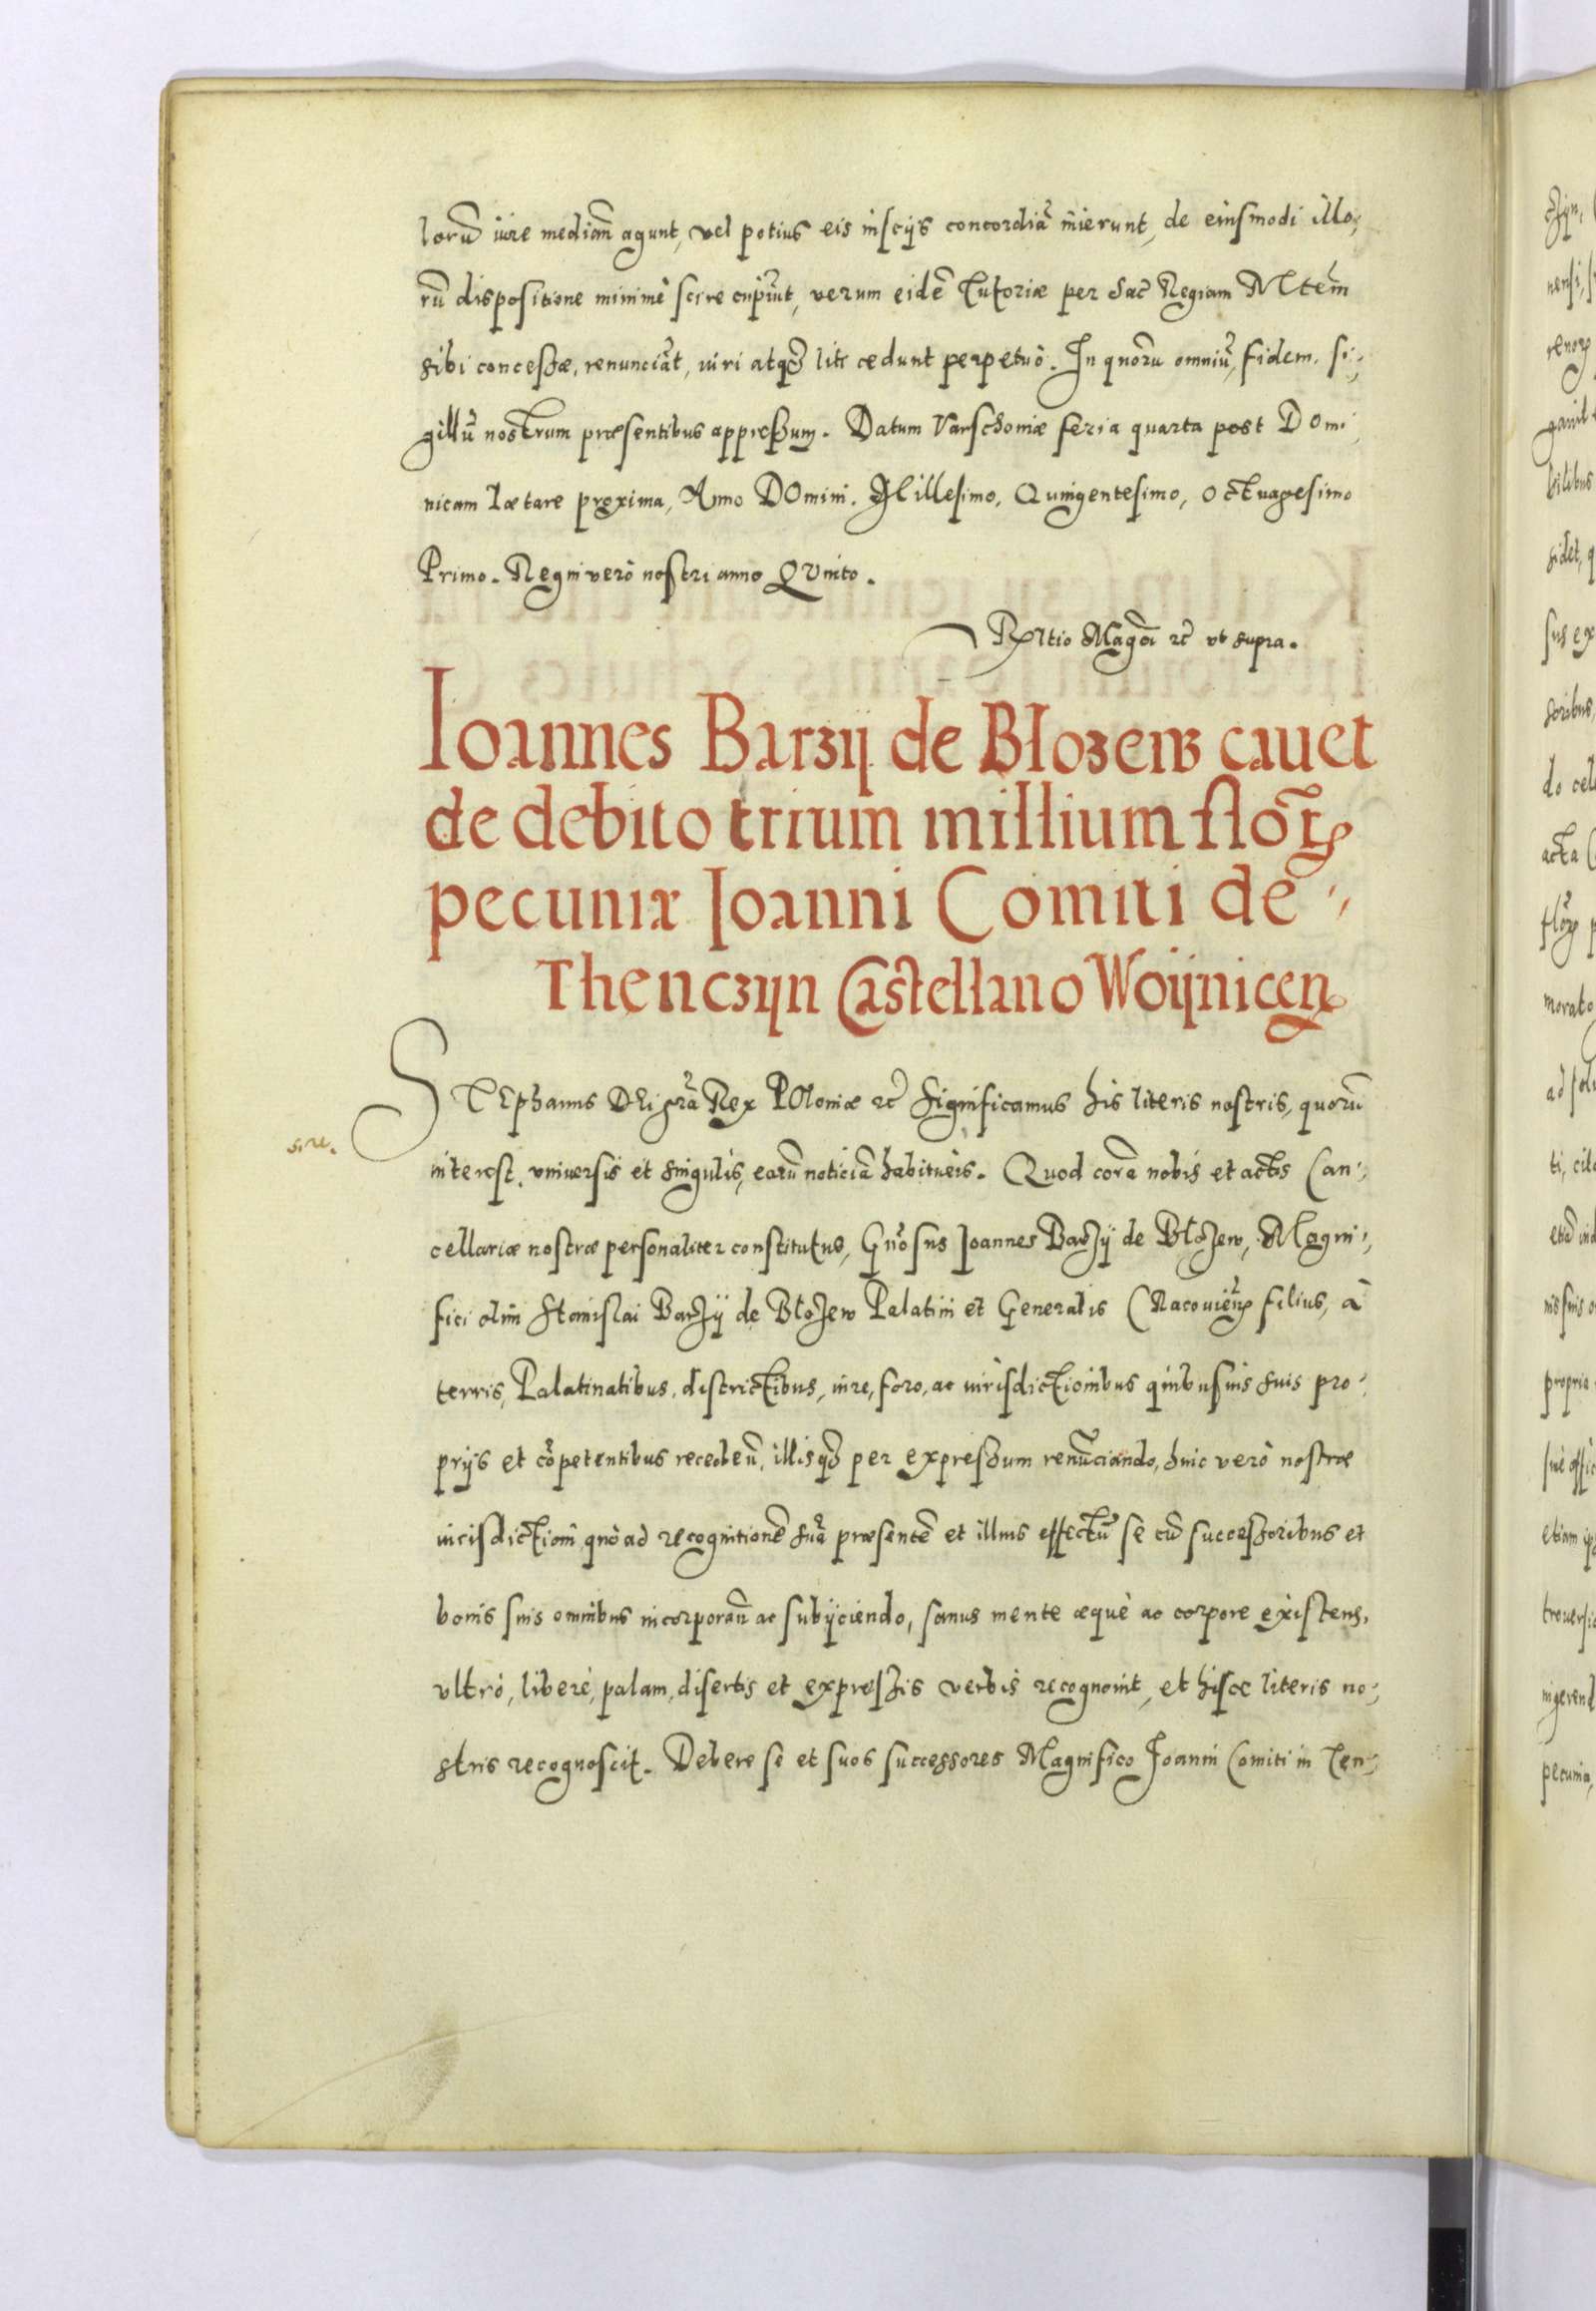 lorũ iure mediam̃ agunt, vel potius eis insciis concordiã inierunt, de eiusmodi illo,
rũ dispositione minimè scire cupiũt, verum eidẽ Tutoriæ per Sac̃ Regiam Mtem̃
sibi concessæ, renunciãt, iuri atq3 liti cedunt perpetuò. In quorũ omniũ, fidem. si,
gillũ nostrum præsentibus appressum. Datum Varschoniæ feria quarta post Domi
nicam Lætare proxima, Anno DOmini. Millesimo, Quingentesimo, Octuagesimo
Primo. Regni verò nostri anno QVinto.
Rltio Mag̃ci ꝛc̃ vt supra.
Ioannes Barzij de Błozew cauet
de debito trium millium flor̃
pecuniæ Ioanni Comiti de,
Thenczijn Castellano Woijnicen
STEphanus DEi grã Rex POloniæ ꝛc̃ Significamus his literis nostris, quorũ
interest. vniuersis et singulis, earũ noticiã habituris. Quod corã nobis et actis Can,
cellariæ nostræ personaliter constitutus, Gñosus Ioannes Barzÿ de Błozew, Magni,
fici olim Stanislai Barzÿ de Błozew Palatini et Generalis CRacovieñ filius, à
terris, Palatinatibus, districtibus, iure, foro, ac iurisdictionibus quibusuis suis pro,
priis et cõpetentibus recedeñ, illisq3 per expressum renũciando, huic verò nostræ
iurisdictioni quò ad recognitionẽ suã præsentẽ et illius effectũ se cũ successoribus et
bonis suis omnibus incorporañ ac subijciendo, sanus mente æquè ac corpore existens,
vltrò, liberè, palam, disertis et expressis verbis recognouit, et hisce literis no,
stris recognoscit. Debere se et suos successores Magnifico Ioanni Comiti in Ten,